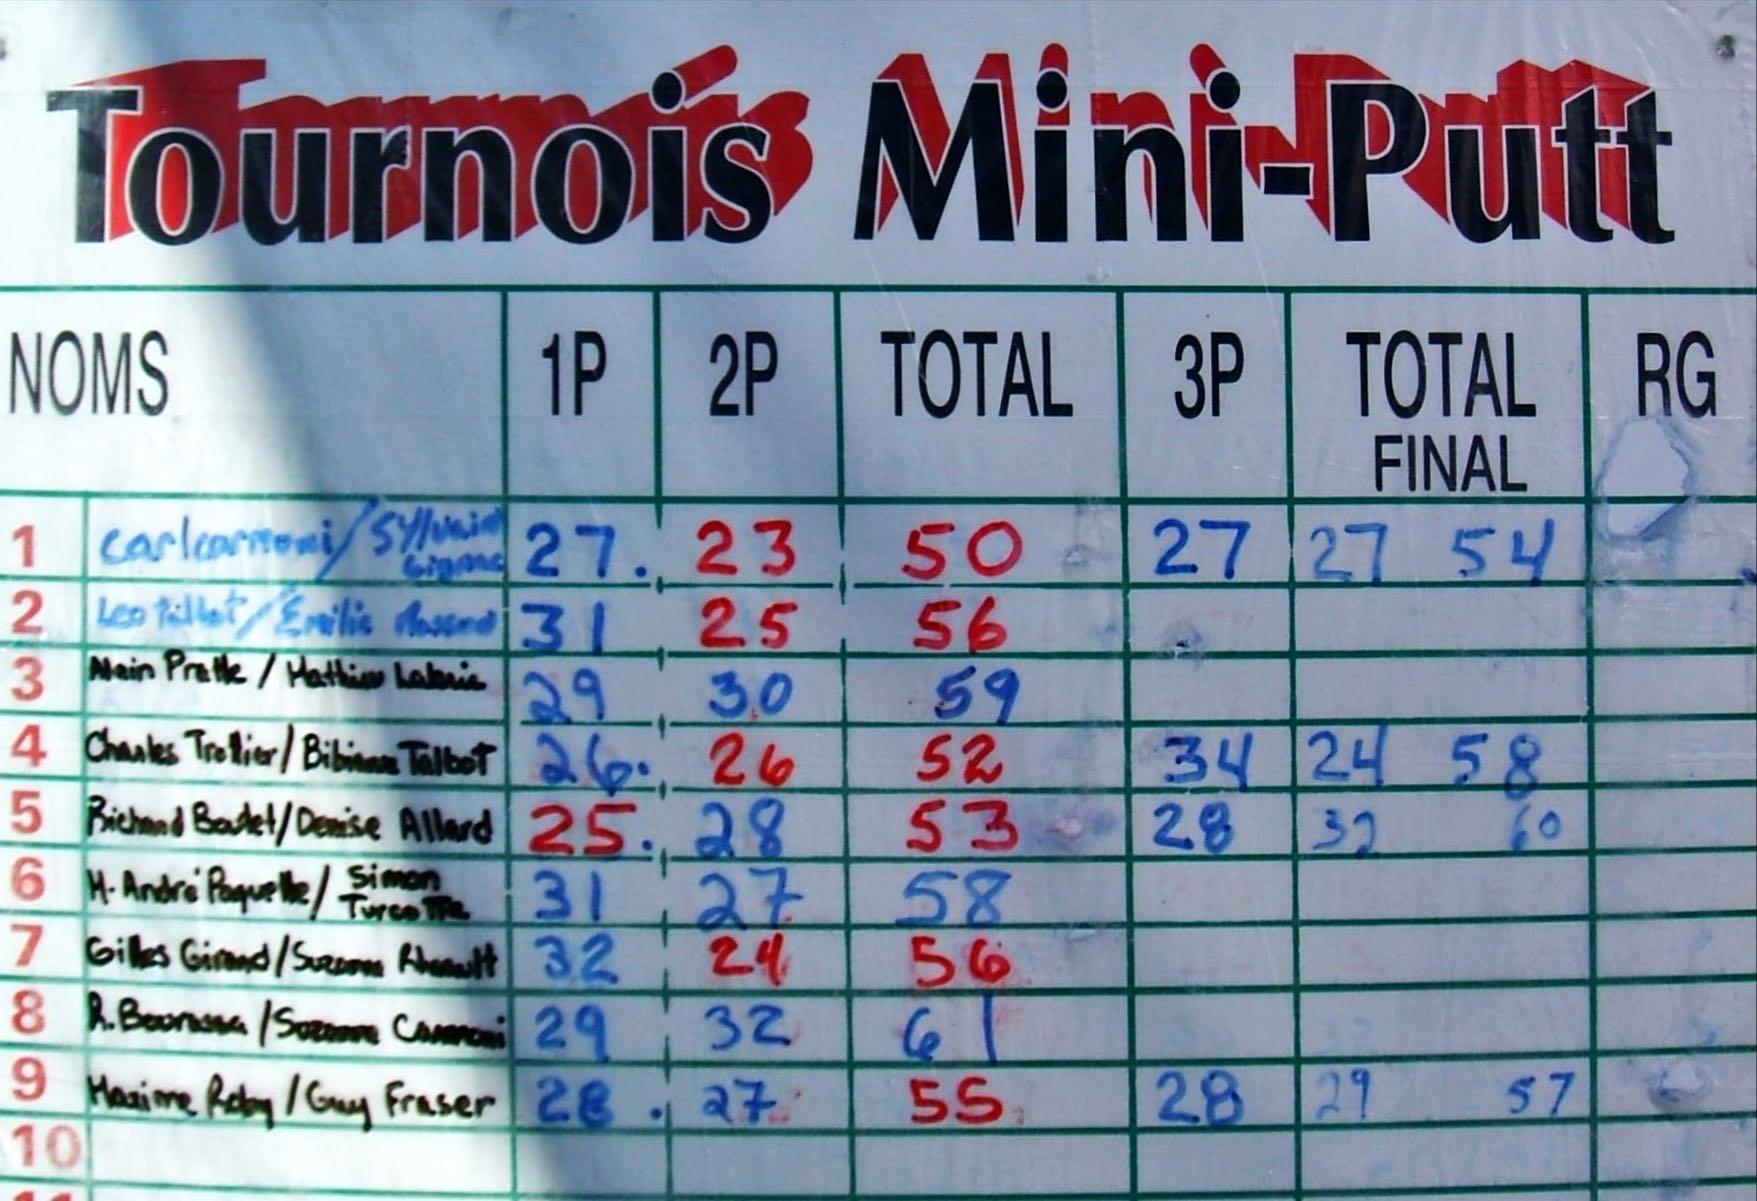 Tournois Mini-Putt
NOMS 1P 2P TOTAL 3P TOTAL FINAL RG
1 Carl carmoni / Sylvain Gignac 27. 23 50 27 27 54
2 Leo Talbot / Emilie 31 25 56
3 Alain Pratte / Mathieu 29 30 59
4 Charles Trottier / Bibiane Talbot 26. 26 52 34 24 58
5 Richard Boutet / Denise Allard 25. 28 53 28 32 60
6 M. André Paquette / Simon Turcotte 31 27 58
7 Gilles Girard / Suzanne Rheault 32 24 56
8 R. Bourassa / Suzanne Carmoni 29 32 61
9 Maxime Roby / Guy Fraser 28. 27 55 28 29 57
10
11